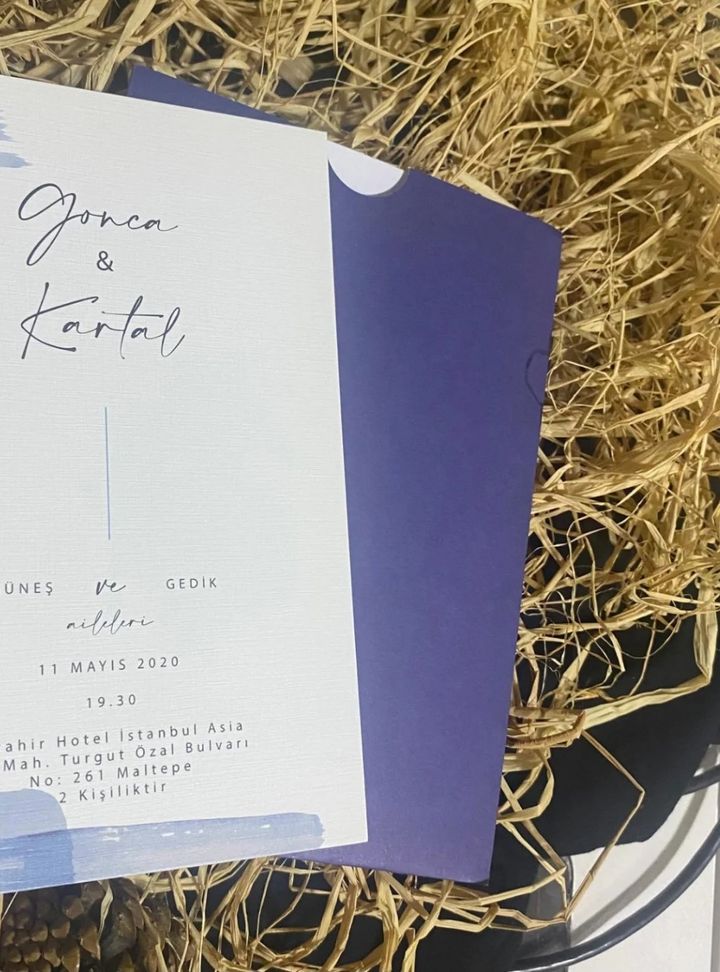 Gonca
&
Kartal
ÜNEŞ ve GEDİK
aileleri
11 MAYIS 2020
19.30
ahir Hotel İstanbul Asia
Mah. Turgut Özal Bulvarı
No: 261 Maltepe
2 Kişiliktir